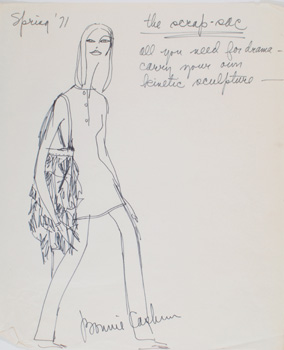 Spring '71
the scrap-sac
all you need for drama -
carry your own
kinetic sculpture —
Bonnie Cashin